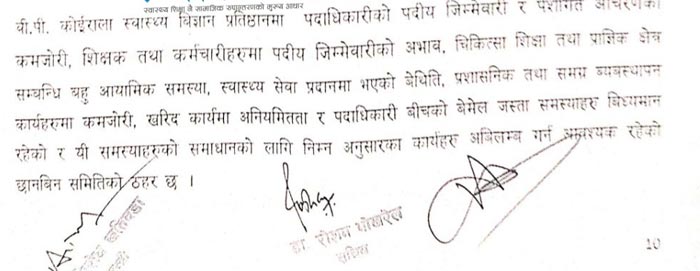 स्वास्थ्य शिक्षा नै सामाजिक रुपान्तरणको मुख्य आधार
वी.पी. कोईराला स्वास्थ्य विज्ञान प्रतिष्ठानमा पदाधिकारीको पदीय जिम्मेवारी र पेशागत आचरणको
कमजोरी, शिक्षक तथा कर्मचारीहरुमा पदीय जिम्मेवारीको अभाव, चिकित्सा शिक्षा तथा प्राज्ञिक क्षेत्र
सम्बन्धि बहु आयामिक समस्या, स्वास्थ्य सेवा प्रदानमा भएको बेथिति, प्रशासनिक तथा समग्र व्यवस्थापन
कार्यहरुमा कमजोरी, खरिद कार्यमा अनियमितता र पदाधिकारी बीचको बेमेल जस्ता समस्याहरु बिध्यमान
रहेको र यी समस्याहरुको समाधानको लागि निम्न अनुसारका कार्यहरु अबिलम्ब गर्न आवश्यक रहेको
छानबिन समितिको ठहर छ ।
डा. रोशन पोखरेल
सचिव
10